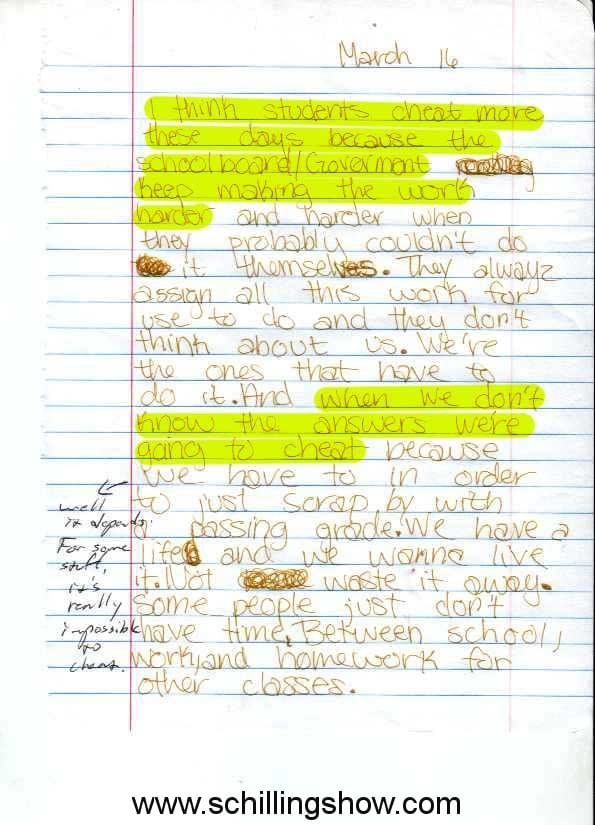 March 16
I think students cheat more
these days because the
schoolboard/Goverment
keep making the work
harder and harder when
they probably couldn't do
it themselves. They alwayz
assign all this work for
use to do and they don't
think about us. We're
the ones that have to
do it. And when we don't
know the answers we're
going to cheat because
we have to in order
to just scrap by with
a passing grade. We have a
life and we wanna live
it. Not waste it away.
Some people just don't
have time. Between school,
work, and homework for
other classes.
well
it depends.
For some
stuff,
it's
really
impossible
to
cheat.
www.schillingshow.com